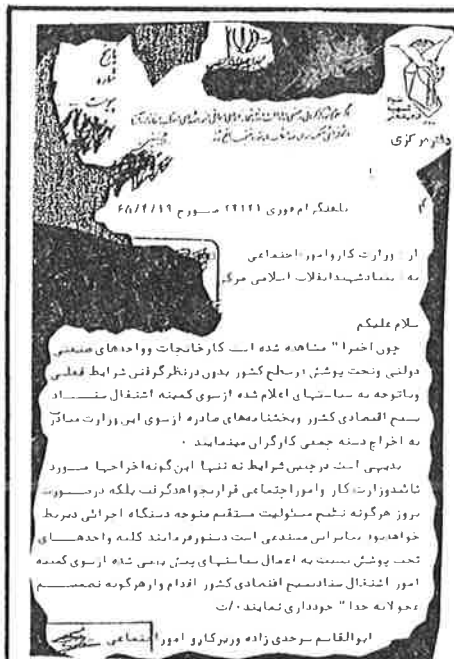 تاریخ
شماره
پیوست
دفتر مرکزی
تلفنگرام فوری ۲۲۱۲۱ مورخ ۶۸/۴/۱۹
از : وزارت کار و امور اجتماعی
به : بنیاد شهید انقلاب اسلامی مرکز
سلام علیکم
چون اخیرا" مشاهده شده است کارخانجات و واحدهای صنعتی
دولتی و تحت پوشش در سطح کشور بدون در نظر گرفتن شرایط فعلی
و باتوجه به سیاستهای اعلام شده از سوی کمیته اشتغال ستاد
بسیج اقتصادی کشور و بخشنامه‌های صادره از سوی این وزارت مبادرت
به اخراج دسته جمعی کارگران مینمایند ۰
بدیهی است در چنین شرایط نه تنها این گونه اخراجها مورد
تائید وزارت کار و امور اجتماعی قرار نخواهد گرفت بلکه در صورت
بروز هرگونه تشنج مسئولیت مستقیم متوجه دستگاه اجرائی ذیربط
خواهد بود بنابراین مستدعی است دستور فرمایند کلیه واحدهای
تحت پوشش نسبت به اعمال سیاستهای پیش بینی شده از سوی کمیته
امور اشتغال ستاد بسیج اقتصادی کشور اقدام و از هرگونه تصمیم
عجولانه جدا" خودداری نمایند ۰/ت
ابوالقاسم سرحدی زاده وزیر کار و امور اجتماعی